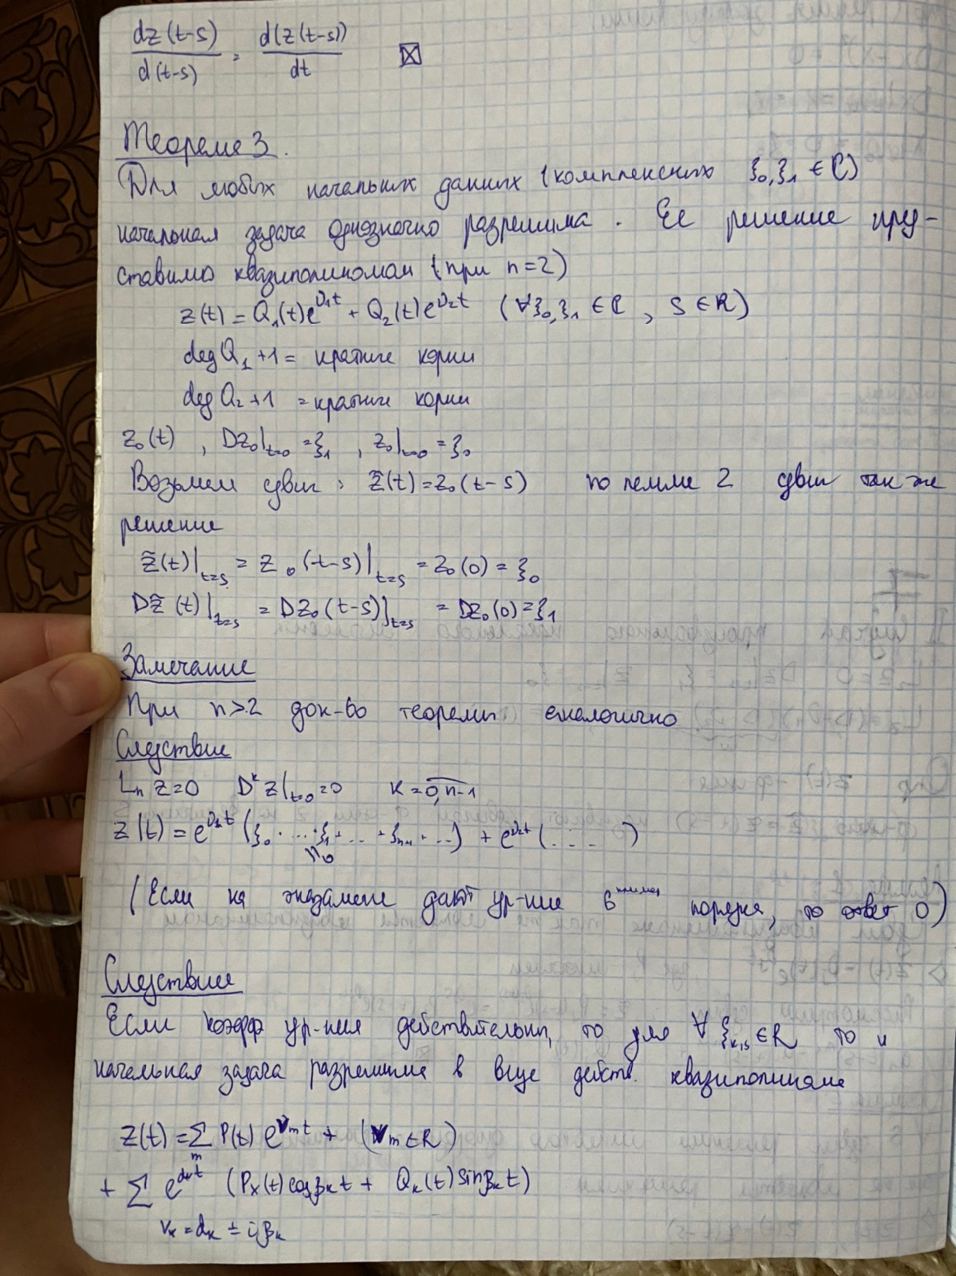 dz(t-s)/d(t-s) = d(z(t-s))/dt ⊠
Теорема 3.
Для любых начальных данных (комплексных ξ₀,ξ₁ ∈ ℂ)
начальная задача однозначно разрешима. Её решение пру-
ставимо квазиполиномом (при n=2)
z(t) = Q₁(t)e^{ν₁t} + Q₂(t)e^{ν₂t} (∀ξ₀,ξ₁ ∈ ℂ, S ∈ ℝ)
deg Q₁ +1 = кратние корни
deg Q₂ +1 = кратние корни
z₀(t), Dz₀|_{t=0} = ξ₁, z₀|_{t=0} = ξ₀
Возьмем сдвиг: z̃(t) = z₀(t-s) по лемме 2 сдвиг так же
решение
z̃(t)|_{t=s} = z₀(t-s)|_{t=s} = z₀(0) = ξ₀
Dz̃(t)|_{t=s} = Dz₀(t-s)|_{t=s} = Dz₀(0) = ξ₁
Замечание
При n>2 док-во теоремы аналогично
Следствие
Lₙ z=0 D^k z|_{t=0}=0 K = 0,n-1
z(t) = e^{ν₁t}(ξ₀·...·ξ₁·...·ξₙ₋₁·...) + e^{ν₂t}(.... )
(Если на экзамене дают ур-ние 6 порядка, то ответ 0)
Следствие
Если коэфф ур-ния действительны, то для ∀ ξ_{k,s} ∈ ℝ то и
начальная задача разрешима в виде действ. квазиполинома
z(t) = Σ_m P(t) e^{ν_m t} + (ν_m ∈ ℝ)
+ Σ e^{α_k t} (P_k(t) cosβ_k t + Q_k(t) sinβ_k t)
ν_k = α_k ± iβ_k